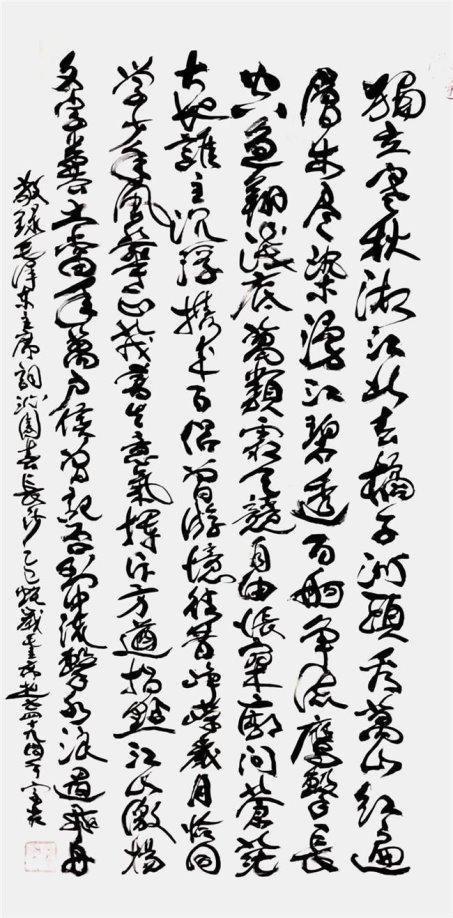 獨立寒秋湘江北去橘子洲頭看萬山紅遍
層林盡染漫江碧透百舸争流鷹擊長
空魚翔淺底萬類霜天競自由悵寥廓問蒼茫
大地誰主沉浮携来百侣曾游憶往昔峥嶸歲月恰同
学少年風華正茂書生意氣揮斥方遒指點江山激揚
文字糞土當年萬户侯曾記否到中流擊水浪遏飛舟
敬録毛泽東主席詞沁園春長沙乙巳